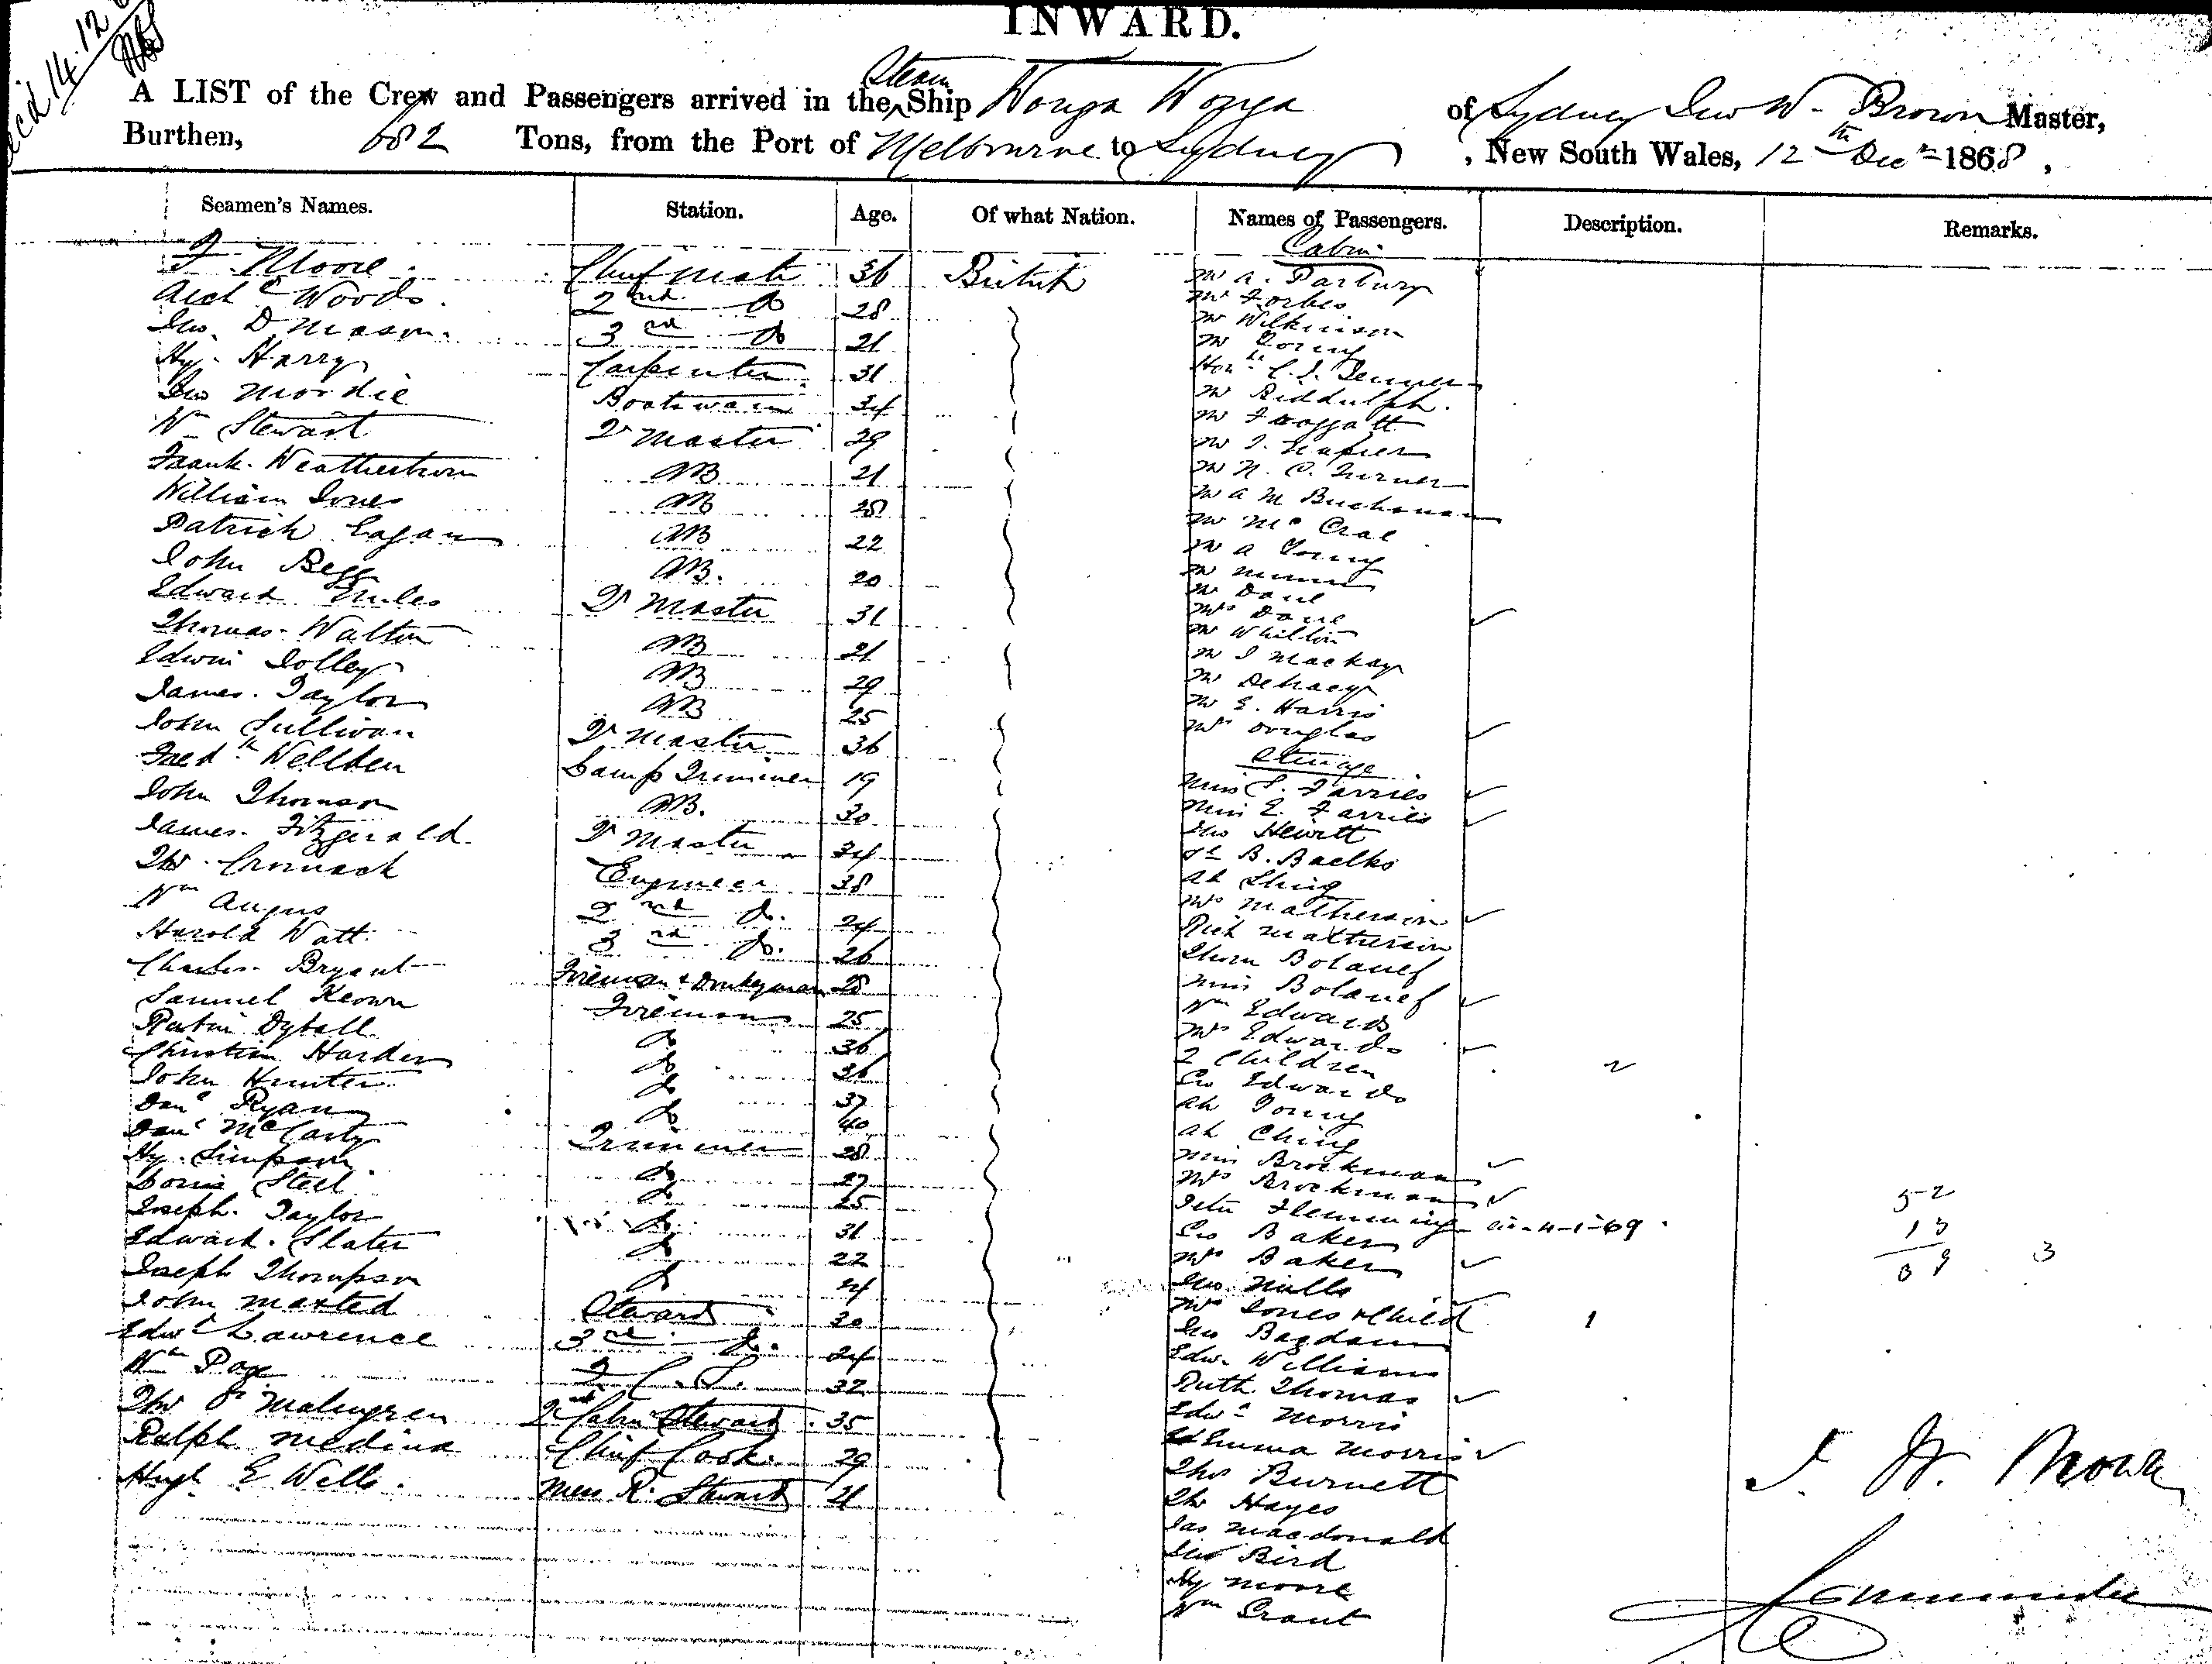 INWARD.
A LIST of the Crew and Passengers arrived in the Steam Ship Wonga Wonga of Sydney Jno W. Brown Master,
Burthen, 682 Tons, from the Port of Melbourne to Sydney, New South Wales, 12th Decr 1868,
Seamen's Names. Station. Age. Of what Nation. Names of Passengers. Description. Remarks.
Cabin
Moore Chief Mate 36 British Mr A. Parbury
Archd Woods 2nd Do 28 Mr Forbes
Jno. D. Mason 3rd Do 21 Mr Wilkinson
Hy. Harry Carpenter 31 Mr Young
Jno Moodie Boatswain 34 Honble
Wm Stewart Qr Master 29 Mr Biddulph
Frank Weatherburn AB 21 Mr Froggatt
William Jones AB 28 Mr J. Napier
Patrick Eagan AB 22 Mr N. C. Turner
John Begg AB. 20 Mr A M Buchanan
Edward Miles Qr Master 31 Mr McCrae
Thomas Walton AB 21 Mr A Young
Edwin Jolley AB 29 Mr
James Taylor AB 25 Mr Dane
John Sullivan Qr Master 36 Mrs Dane
Fredk Wellben Lamp Trimmer 19 Mr Whitton
John Thomson AB. 30 Mr J Mackay
James Fitzgerald Qr Master 34 Mr Dehaey
Thos Cromack Engineer 38 Mr E. Harris
Wm Angus 2nd Do. 24 Mrs Douglas
Steerage
Harold Watt 3rd Do. 26 Miss S. Farries
Charles Bryant Fireman & Donkeyman 28 Miss E. Farries
Samuel Keown Fireman 25 Jno Hewitt
Dyball Do 36 B. Baelks
Christian Harder Do 36 Ah Shing
John Hunter Do 37 Mrs Matherson
Danl Ryan Do 40 Rich Matherson
Danl McCarty Trimmer 28 Thom Bolanef
Hy. Simpson Do 27 Miss Bolanef
Steel Do 25 Wm Edwards
Joseph Taylor Do 31 Mrs Edwards
Edward Slater Do 22 2 Children 2
Joseph Thompson Do 24 Geo Edwards
John Maxted Steward 30 Ah Young
Edwd Lawrence 3rd Do. 24 Ah Ching
Wm Page 2 C. S. 32 Miss Brockman
Thos P Malmgren 2nd Cabin Steward 35 Mrs Brockman
Ralph Medina Chief Cook 29 Peter Flemming 4-1-69
Hugh E Wells Mess R. Steward 21 Geo Baker
Mrs Baker
Jno Mills
Mrs Jones & Child 1
Jno Bagdam
Edw. Williams
Ruth Thomas
Edwd Morris
Emma Morris
Thos Burnett
Thos Hayes
Jas Macdonald
Jno Bird
Hy Moore
Wm Grant
52
3
J. W. Brown
Commander